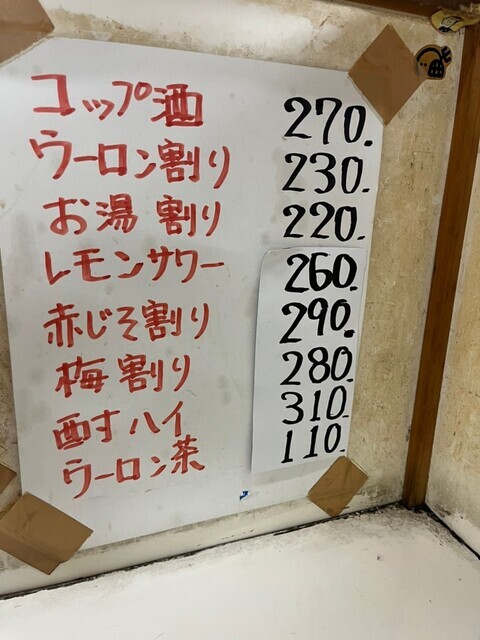 コップ酒 270.
ウーロン割り 230.
お湯割り 220.
レモンサワー 260.
赤じそ割り 290.
梅割り 280.
酎ハイ 310.
ウーロン茶 110.